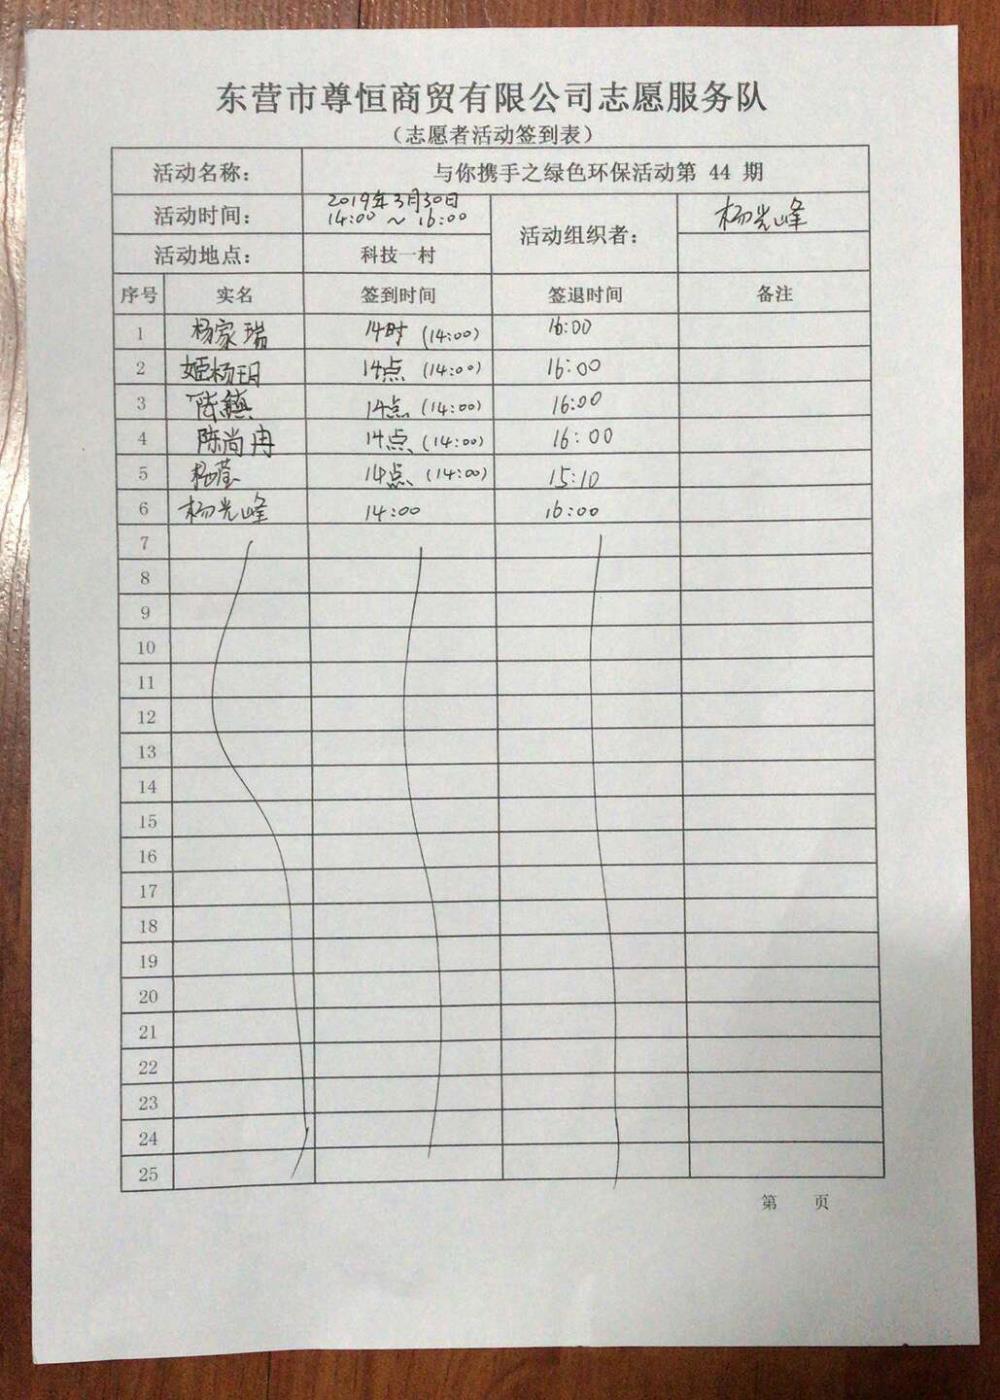 东营市尊恒商贸有限公司志愿服务队
（志愿者活动签到表）
活动名称： 与你携手之绿色环保活动第 44 期
活动时间： 2019年3月30日 14:00 ~ 16:00 活动组织者： 杨光峰
活动地点： 科技一村
序号 实名 签到时间 签退时间 备注
1 杨家瑞 14时 (14:00) 16:00
2 姬杨玥 14点 (14:00) 16:00
3 陈镇 14点 (14:00) 16:00
4 陈尚冉 14点 (14:00) 16:00
5 14点 (14:00) 15:10
6 杨光峰 14:00 16:00
7
8
9
10
11
12
13
14
15
16
17
18
19
20
21
22
23
24
25
第 页